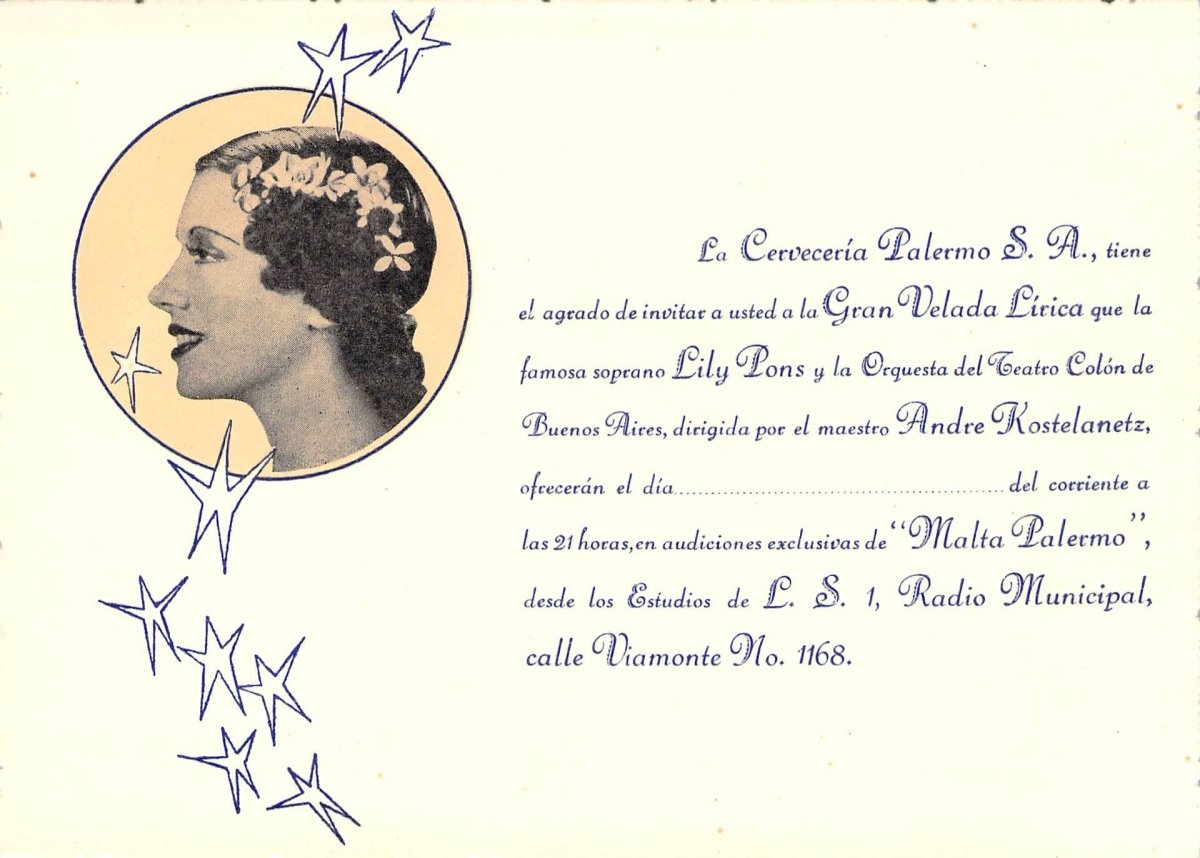 La Cervecería Palermo S. A., tiene
el agrado de invitar a usted a la Gran Velada Lírica que la
famosa soprano Lily Pons y la Orquesta del Teatro Colón de
Buenos Aires, dirigida por el maestro Andre Kostelanetz,
ofrecerán el día.................................................... del corriente a
las 21 horas, en audiciones exclusivas de "Malta Palermo",
desde los Estudios de L. S. 1, Radio Municipal,
calle Viamonte No. 1168.